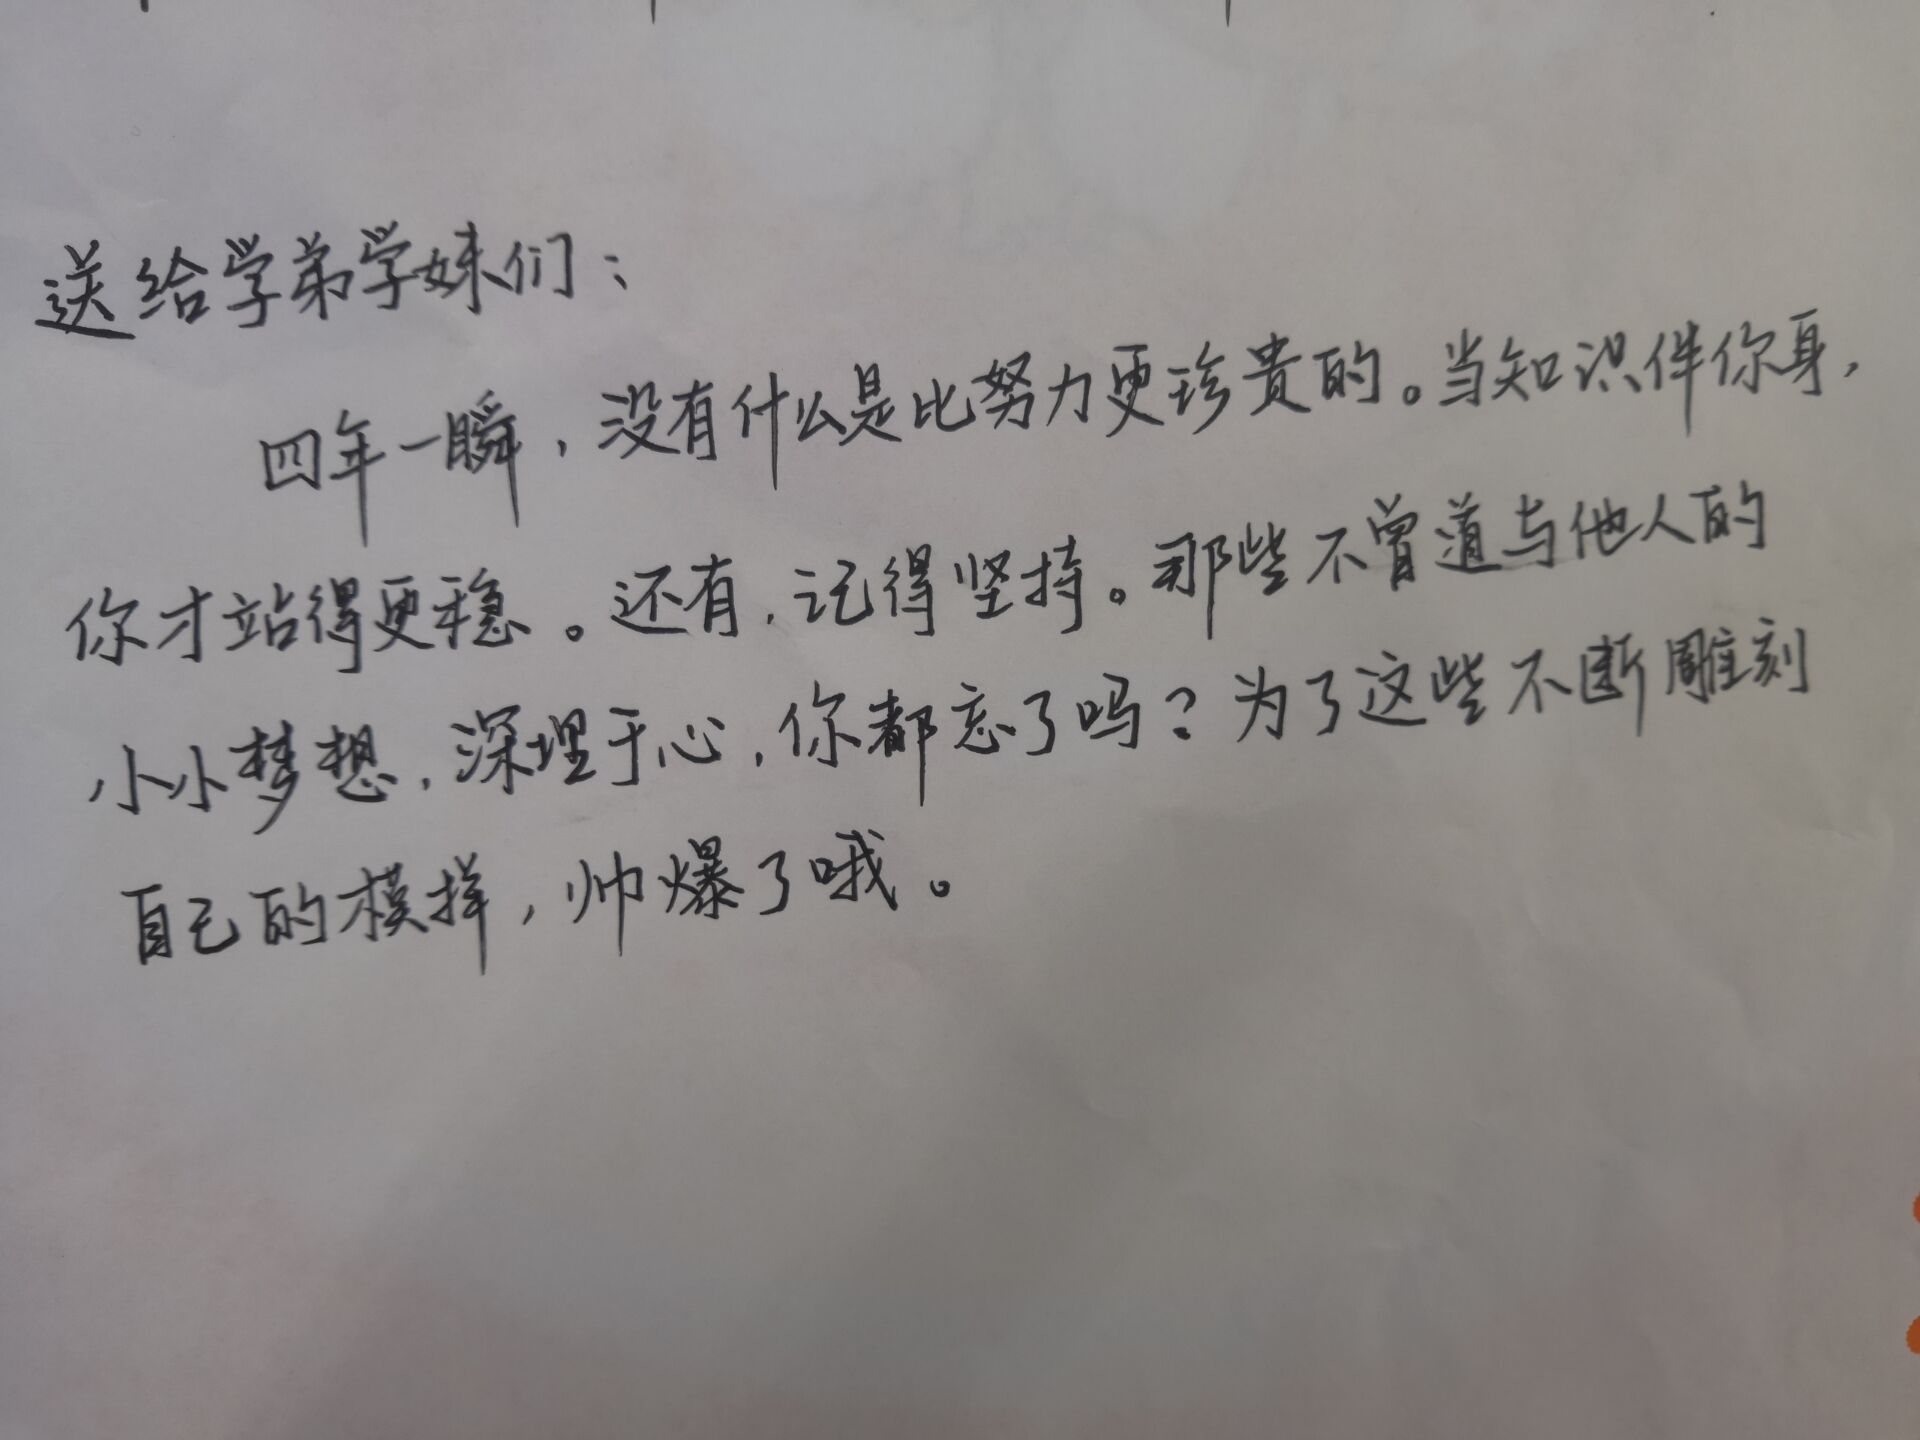 送给学弟学妹们：
四年一瞬，没有什么是比努力更珍贵的。当知识伴你身，
你才站得更稳。还有，记得坚持。那些不曾道与他人的
小小梦想，深埋于心，你都忘了吗？为了这些不断雕刻
自己的模样，帅爆了哦。